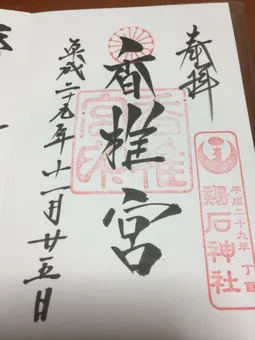 奉拝
香椎宮
平成二十九年十一月廿五日
香椎宮印
平成二十九年 丁酉
鶏石神社